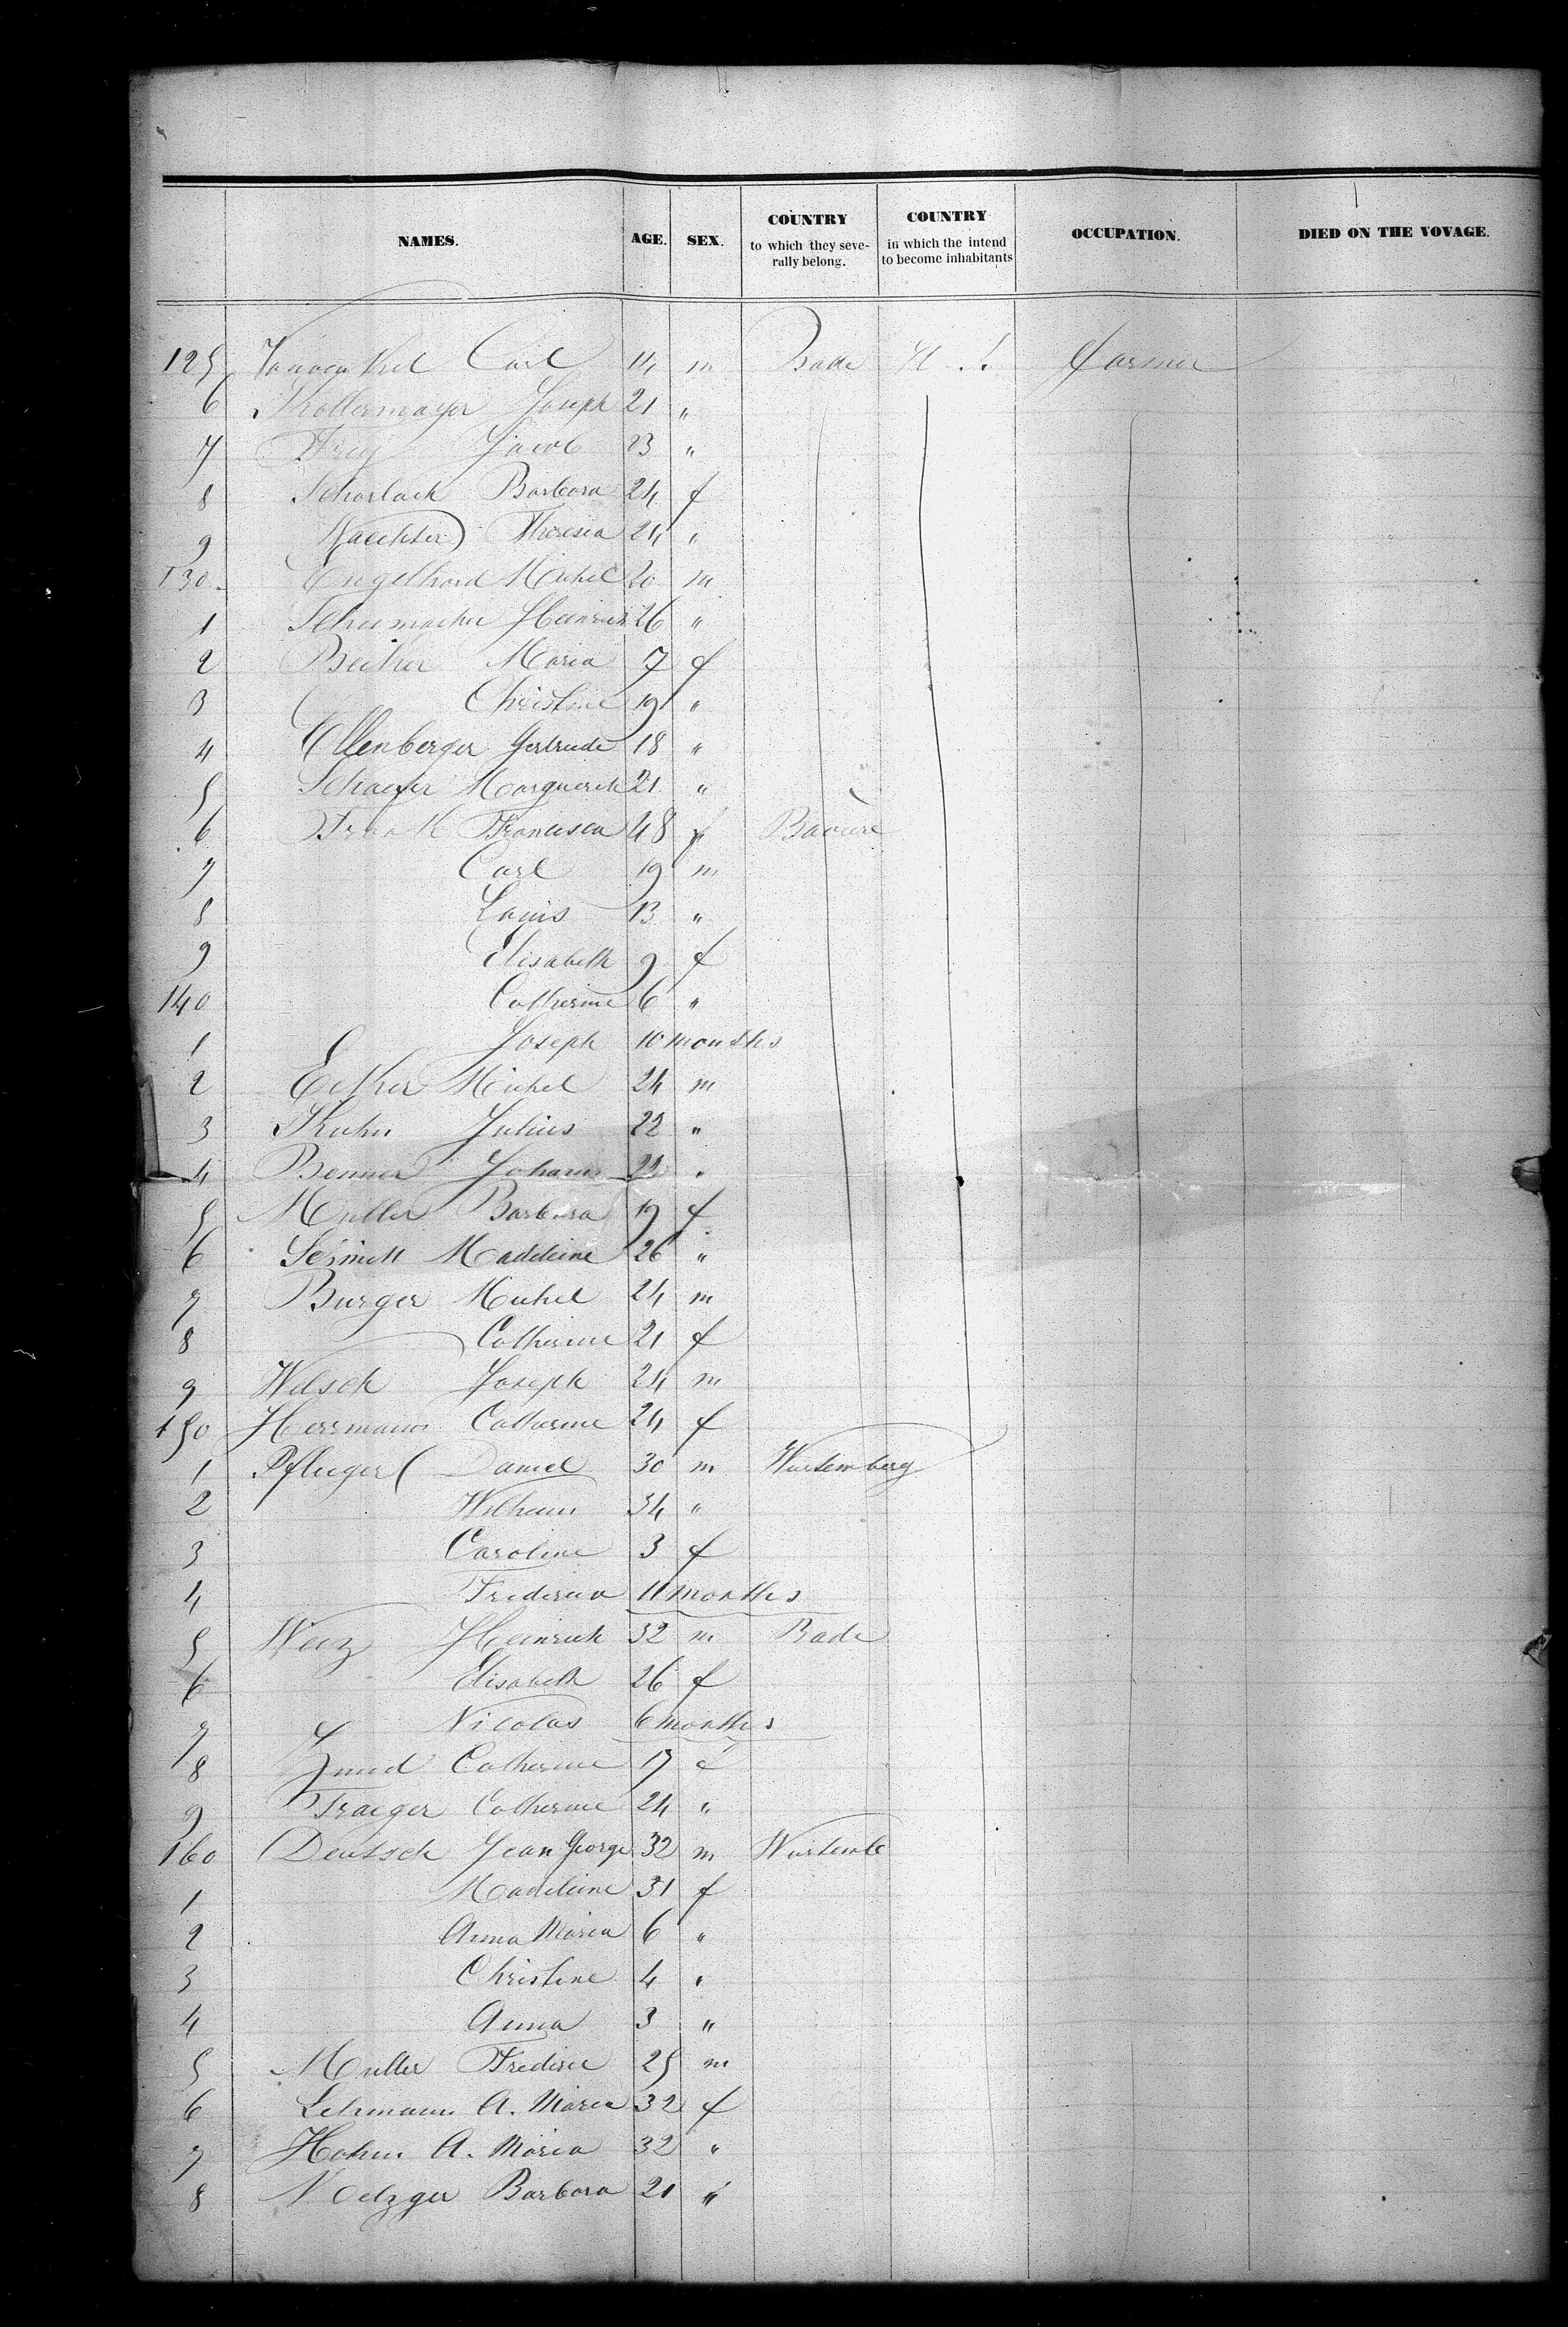 NAMES. AGE. SEX. COUNTRY to which they seve-rally belong. COUNTRY in which the intend to become inhabitants OCCUPATION. DIED ON THE VOYAGE.
125 Carl 14 m Bade U.S. farmer
6 Joseph 21 "
7 Frey Jacob 23 "
8 Scharlach Barbara 24 f
9 Naechter Theresia 24 "
130 Engelhard Michel 20 m
1 Schumacher Heinrich 26 "
2 Becker Maria 7 f
3 Christine 19 "
4 Ellenberger Gertrude 18 "
5 Schaefer Marguerite 21 "
6 Frank Francisca 48 f Bavière
7 Carl 19 m
8 Louis 13 "
9 Elisabeth 9 f
140 Catherine 6 "
1 Joseph 10 months
2 Michel 24 m
3 Kuhn Julius 22 "
4 Johann "
5 Muller Barbara 19 f
6 Schmitt Madeleine 26 "
7 Burger Michel 24 m
8 Catherine 21 f
9 Welsch Joseph 24 m
150 Herrmann Catherine 24 f
1 Pflieger Daniel 30 m Wurtemberg
2 34 "
3 Caroline 3 f
4 11 months
5 Heinrich 32 m Bade
6 Elisabeth 26 f
7 Nicolas 6 months
8 Catherine f
9 Traeger Catherine 24 "
160 Deutsch Jean George 32 m Wurtemb
1 Madeleine 31 f
2 Anna Maria 6 "
3 Christine 4 "
4 Anna 3 "
5 Muller Frederic 25 m
6 Lehmann A. Maria 32 f
7 Hahn A. Maria 32 "
8 Barbara 21 "